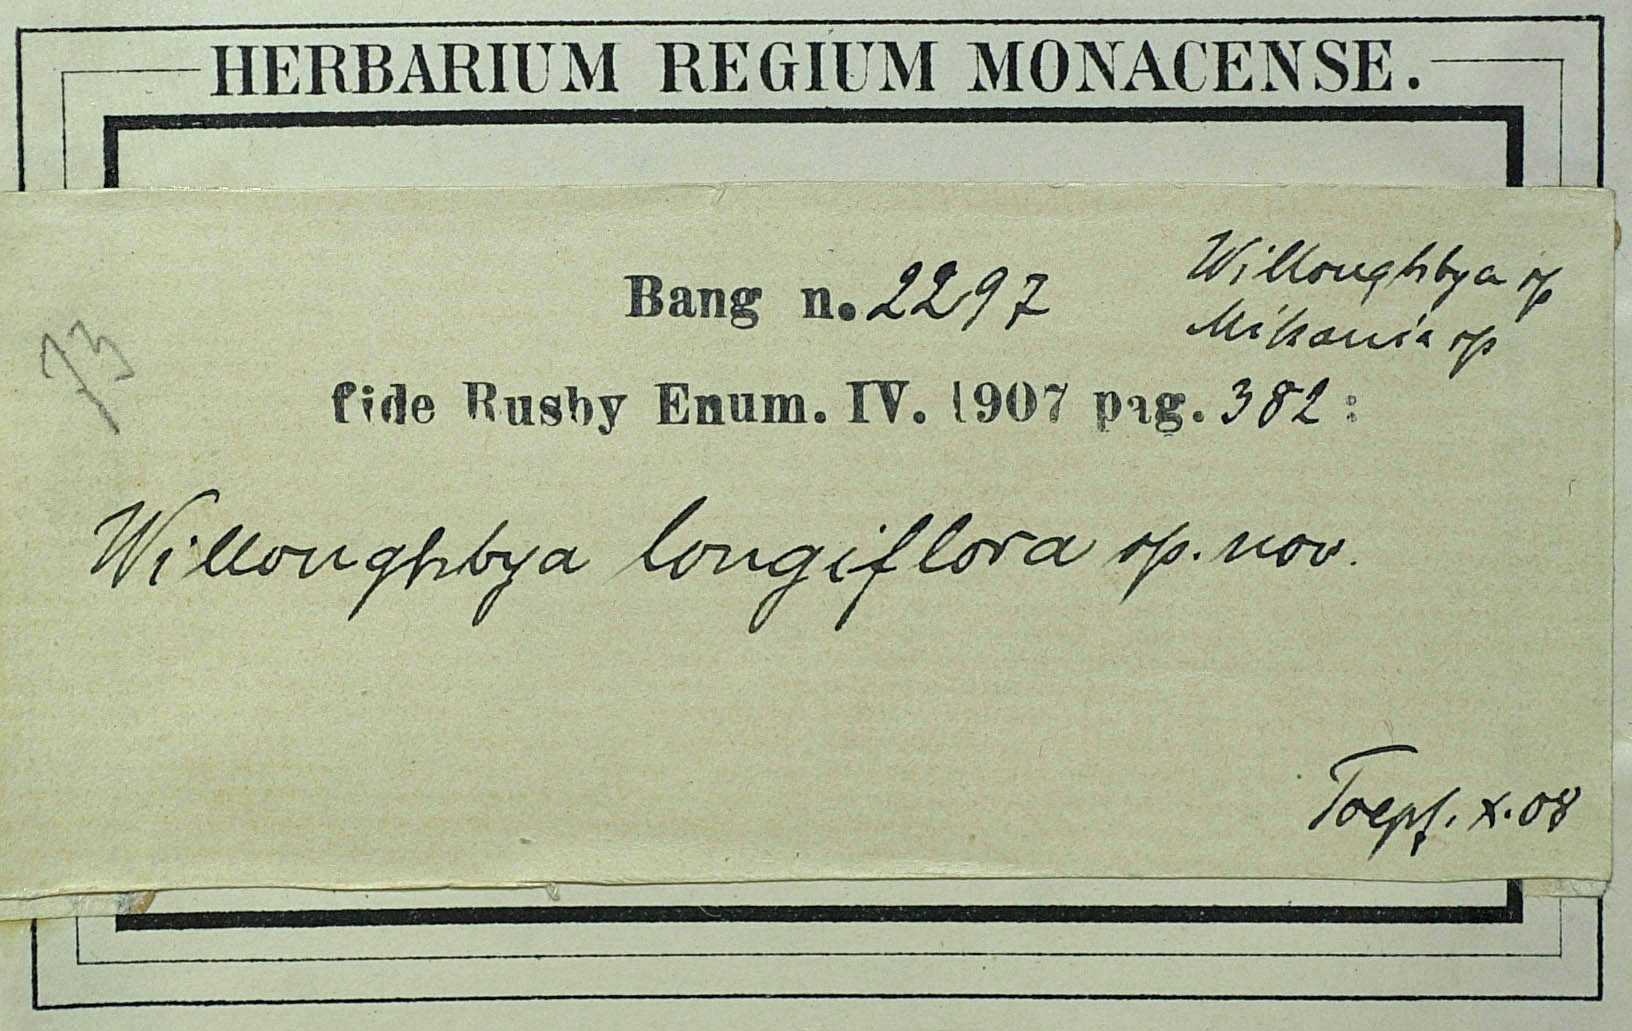 HERBARIUM REGIUM MONACENSE.
Willoughbya sp
Bang n. 2297
Mikania sp
73
fide Rusby Enum. IV. 1907 pag. 382:
Willoughbya longiflora sp. nov.
Toepf. X. 08